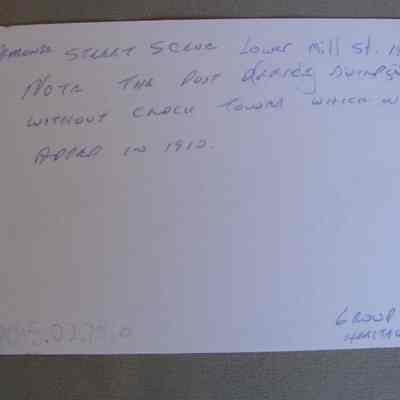 Almonte STREET SCENE Lower Mill St. 19
NOTE THE POST OFFICE BUILDING
WITHOUT CLOCK TOWER WHICH W
ADDED IN 1912.
GROUP
HERITAG